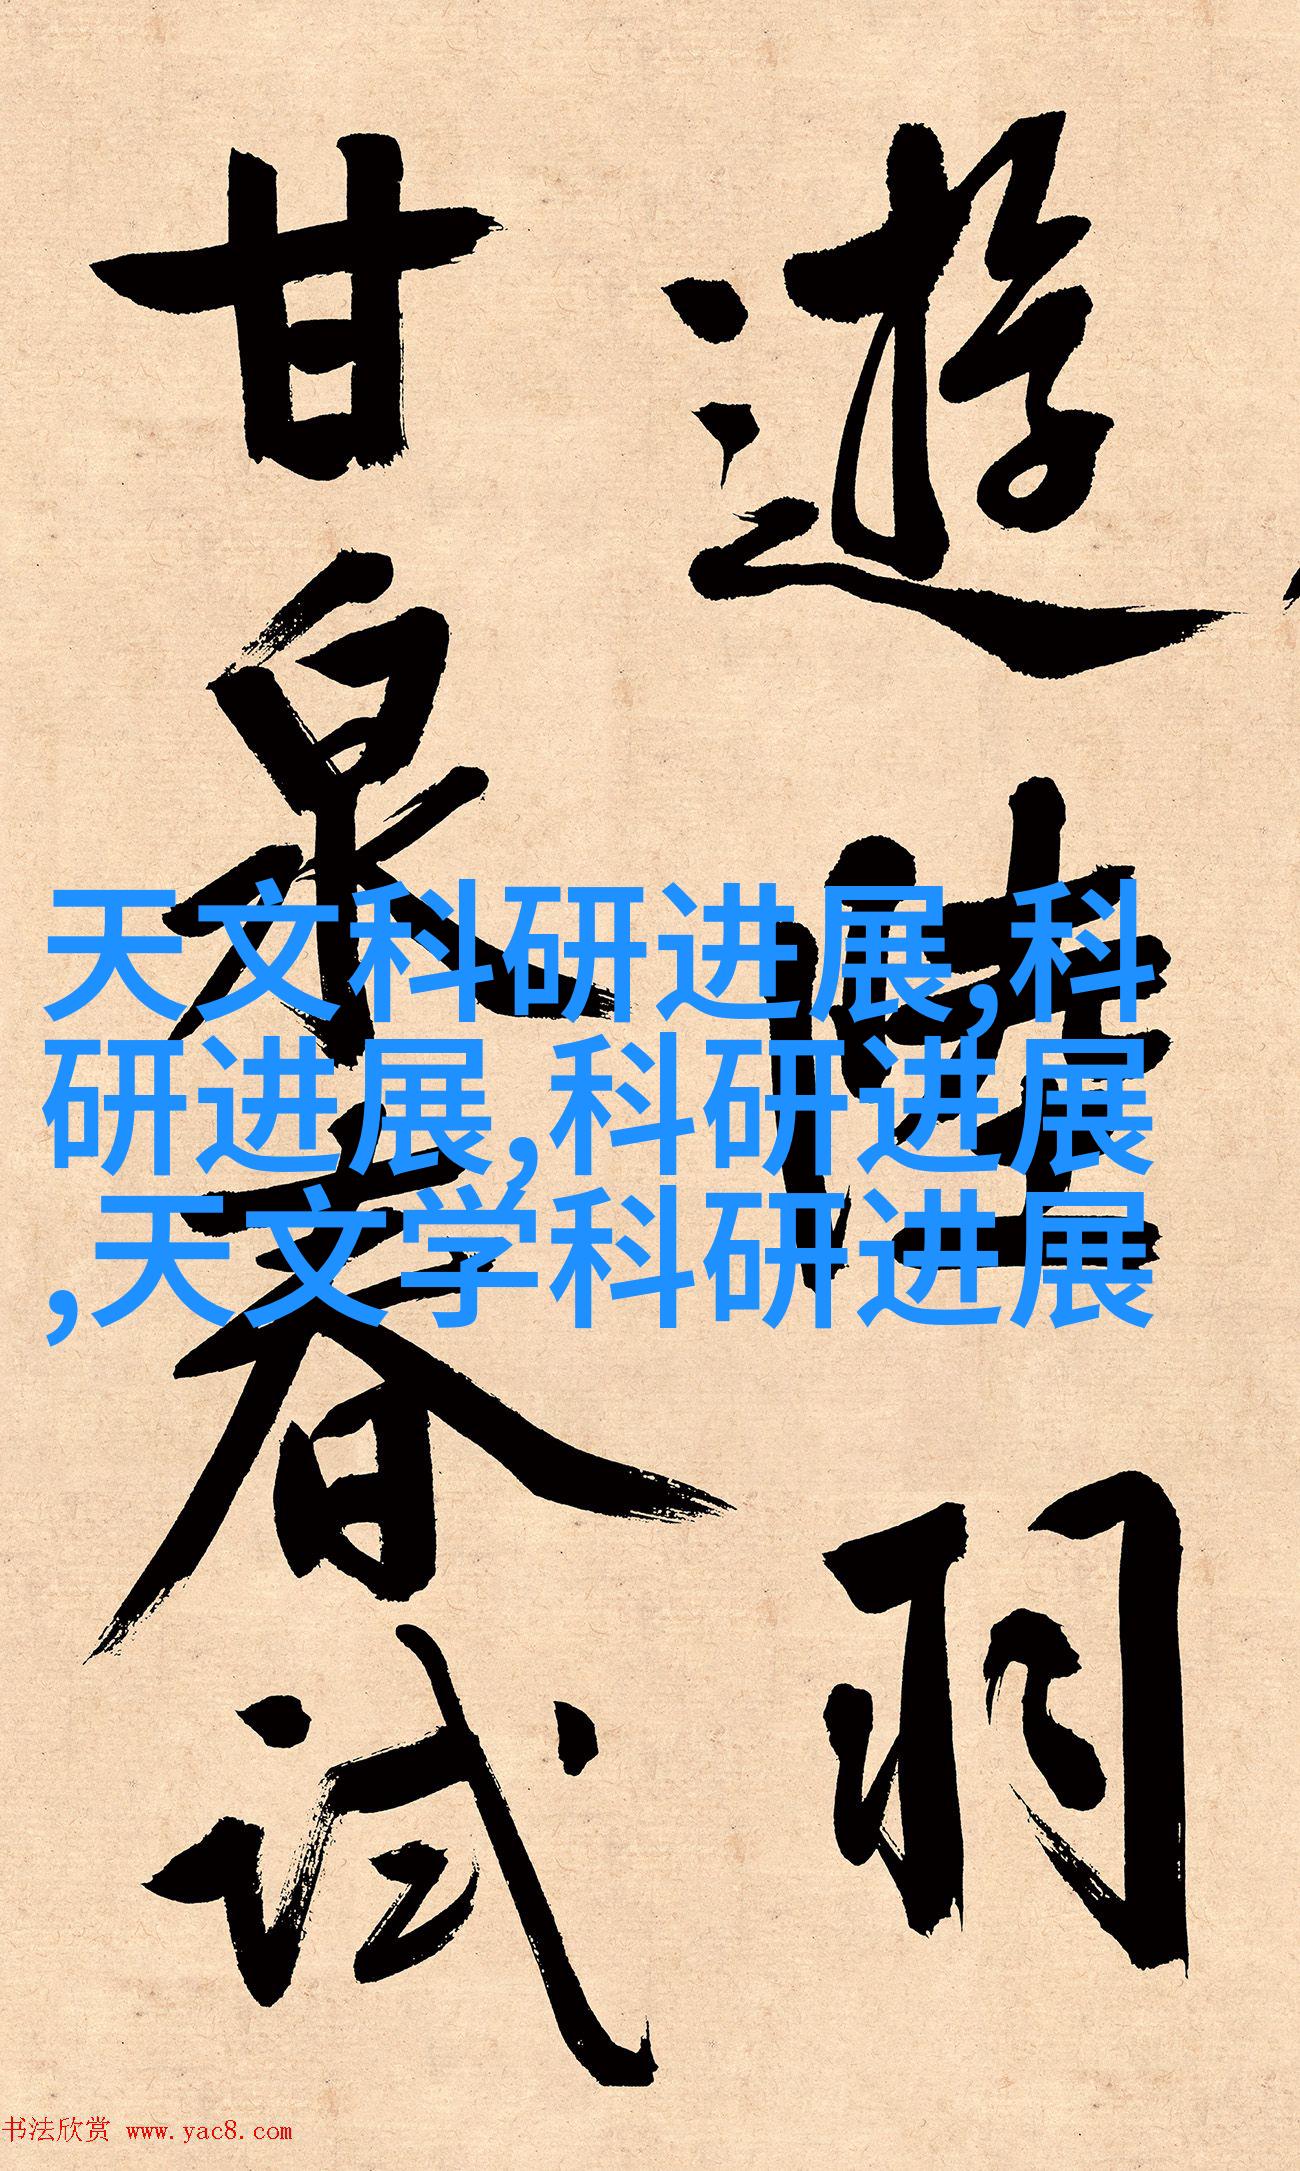 遊陸羽
甘泉春试
天文科研进展,科
研进展,科研进展
,天文学科研进展
书法欣赏 www.yac8.com